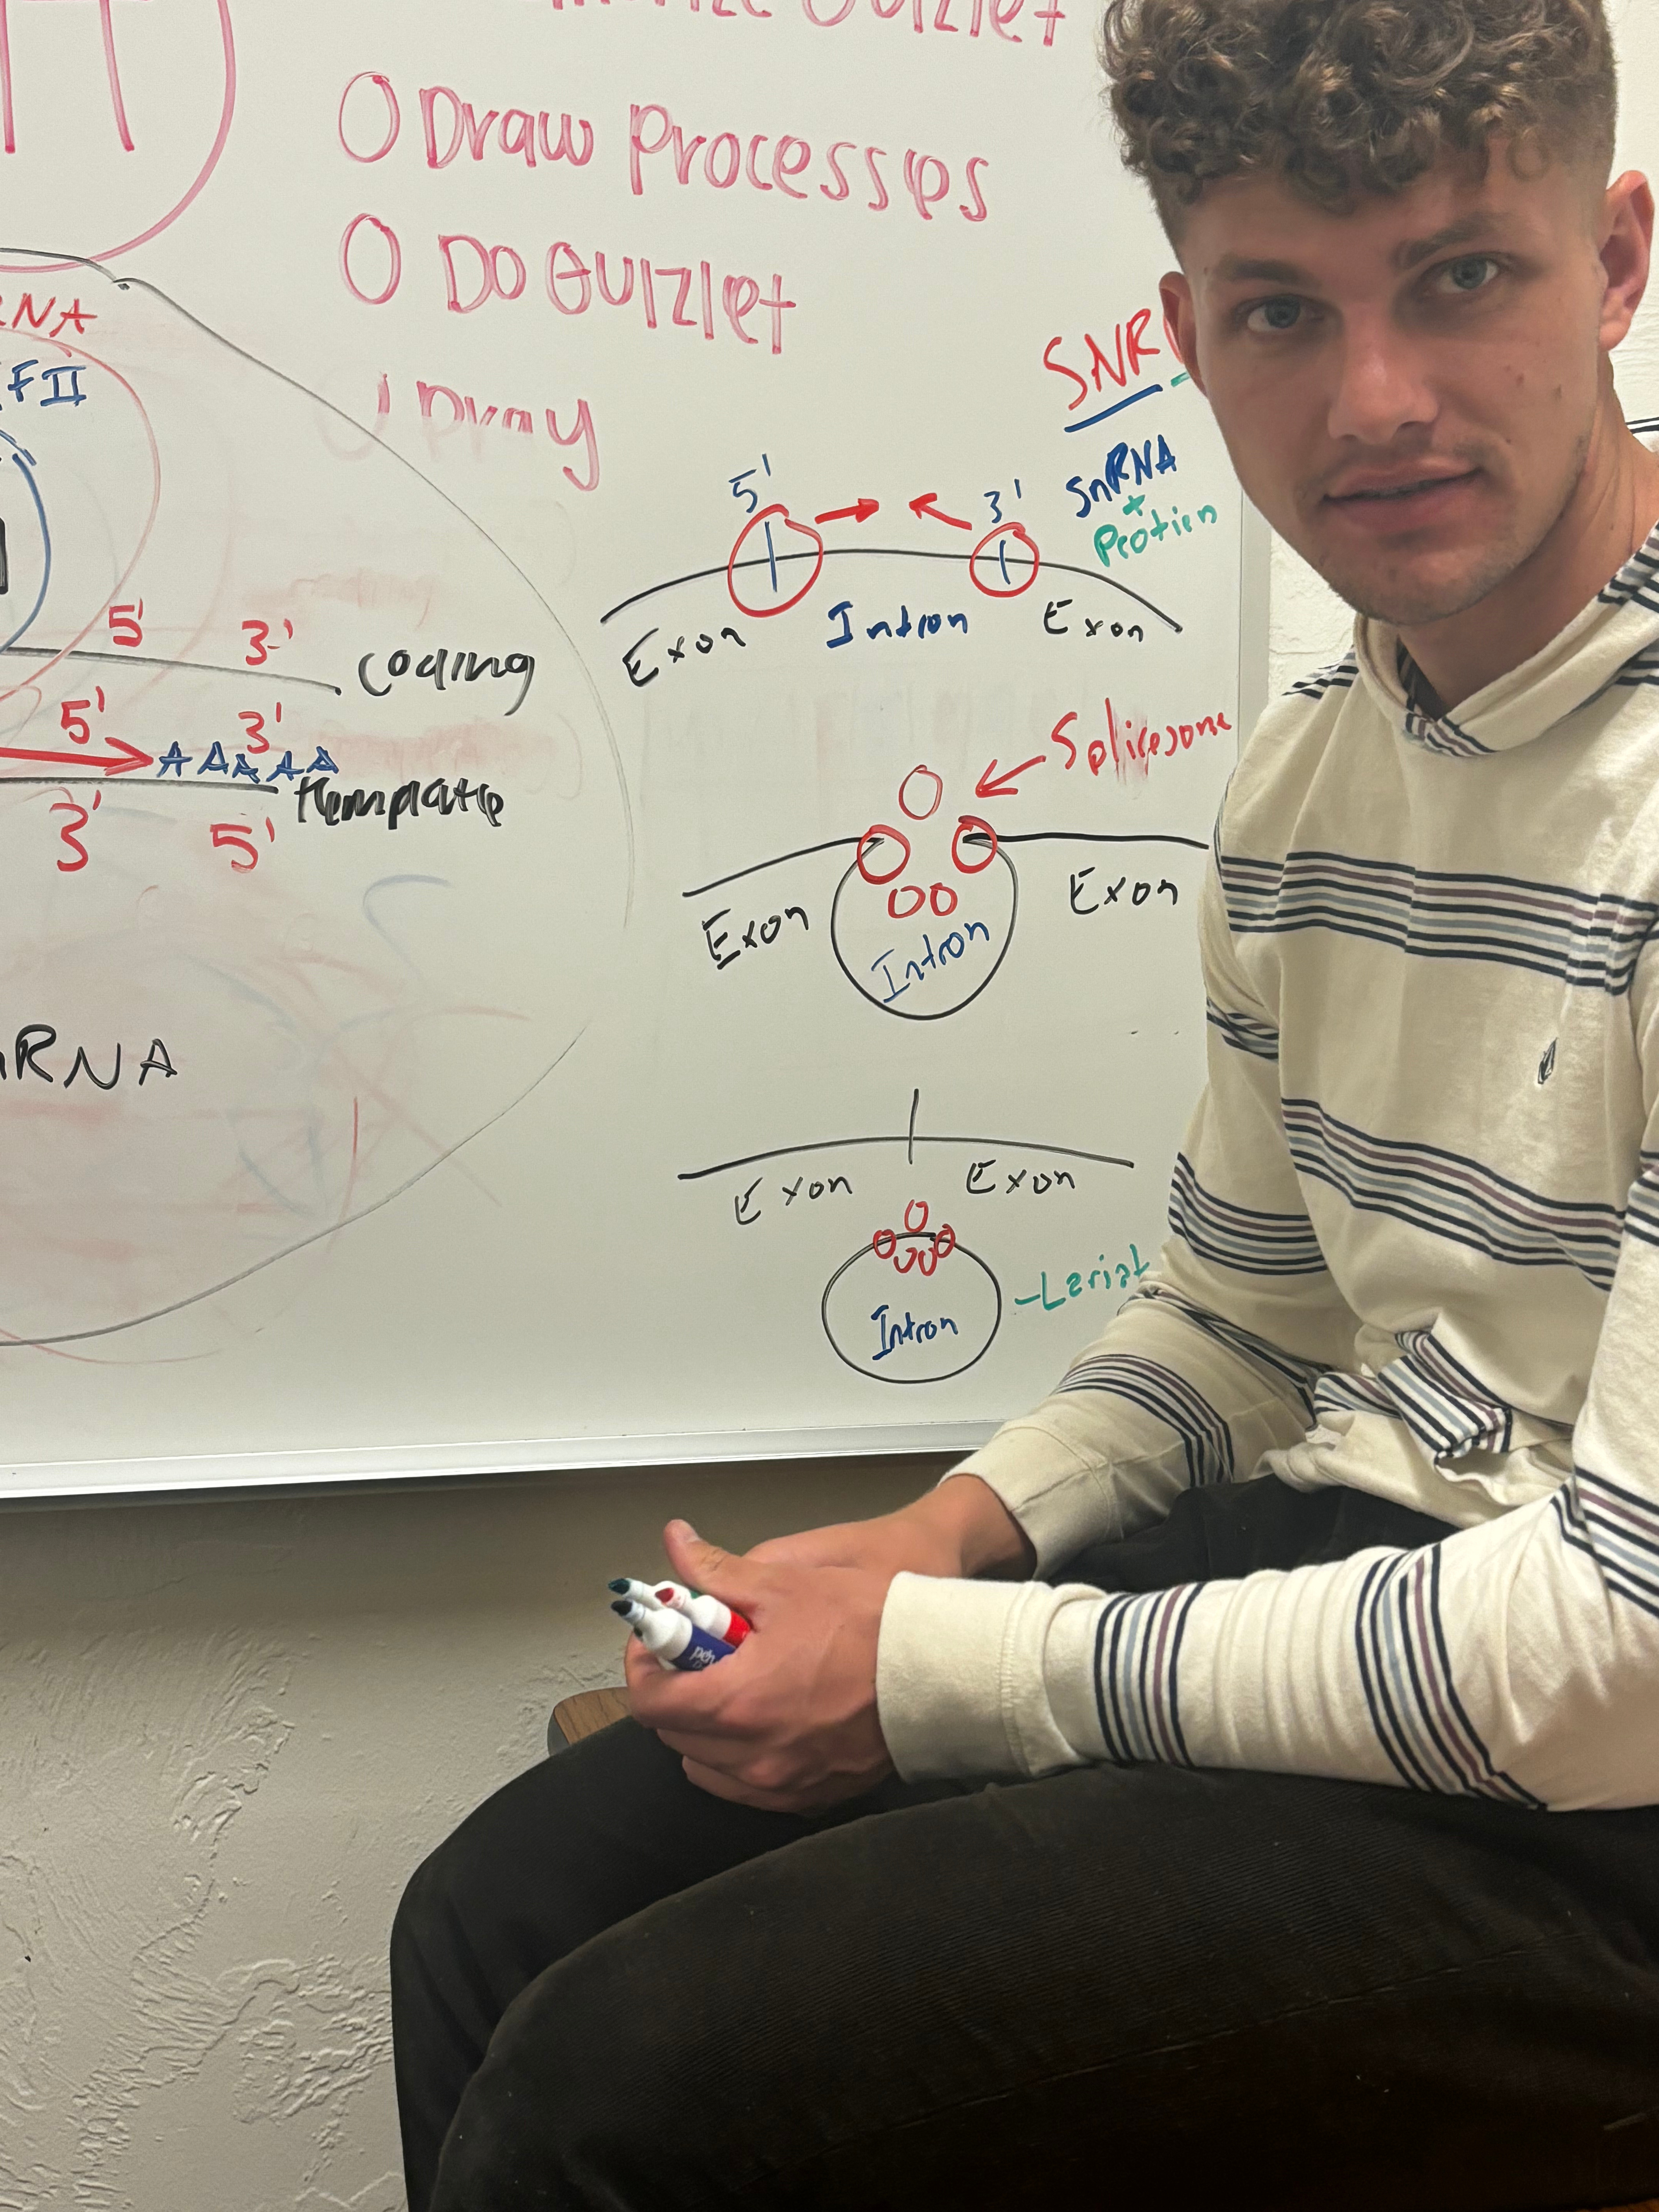 Quizlet
O Draw Processes
O Do Quizlet
Pray
RNA
FII
5' 3'
coding
5' 3'
AAAAA
template
3' 5'
RNA
SNR
SnRNA
+
Protien
5' 3'
Exon Intron Exon
Splicesome
Exon Intron Exon
Exon Exon
Intron
-Leriat